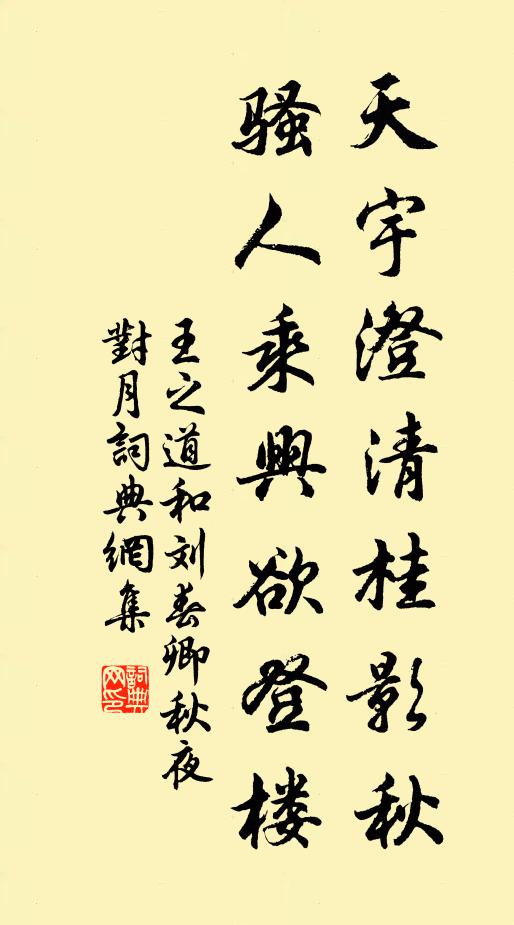 天宇澄清桂影秋
骚人乘興欲登楼
王之道和刘春卿秋夜
對月詞典網集
詞典
网印